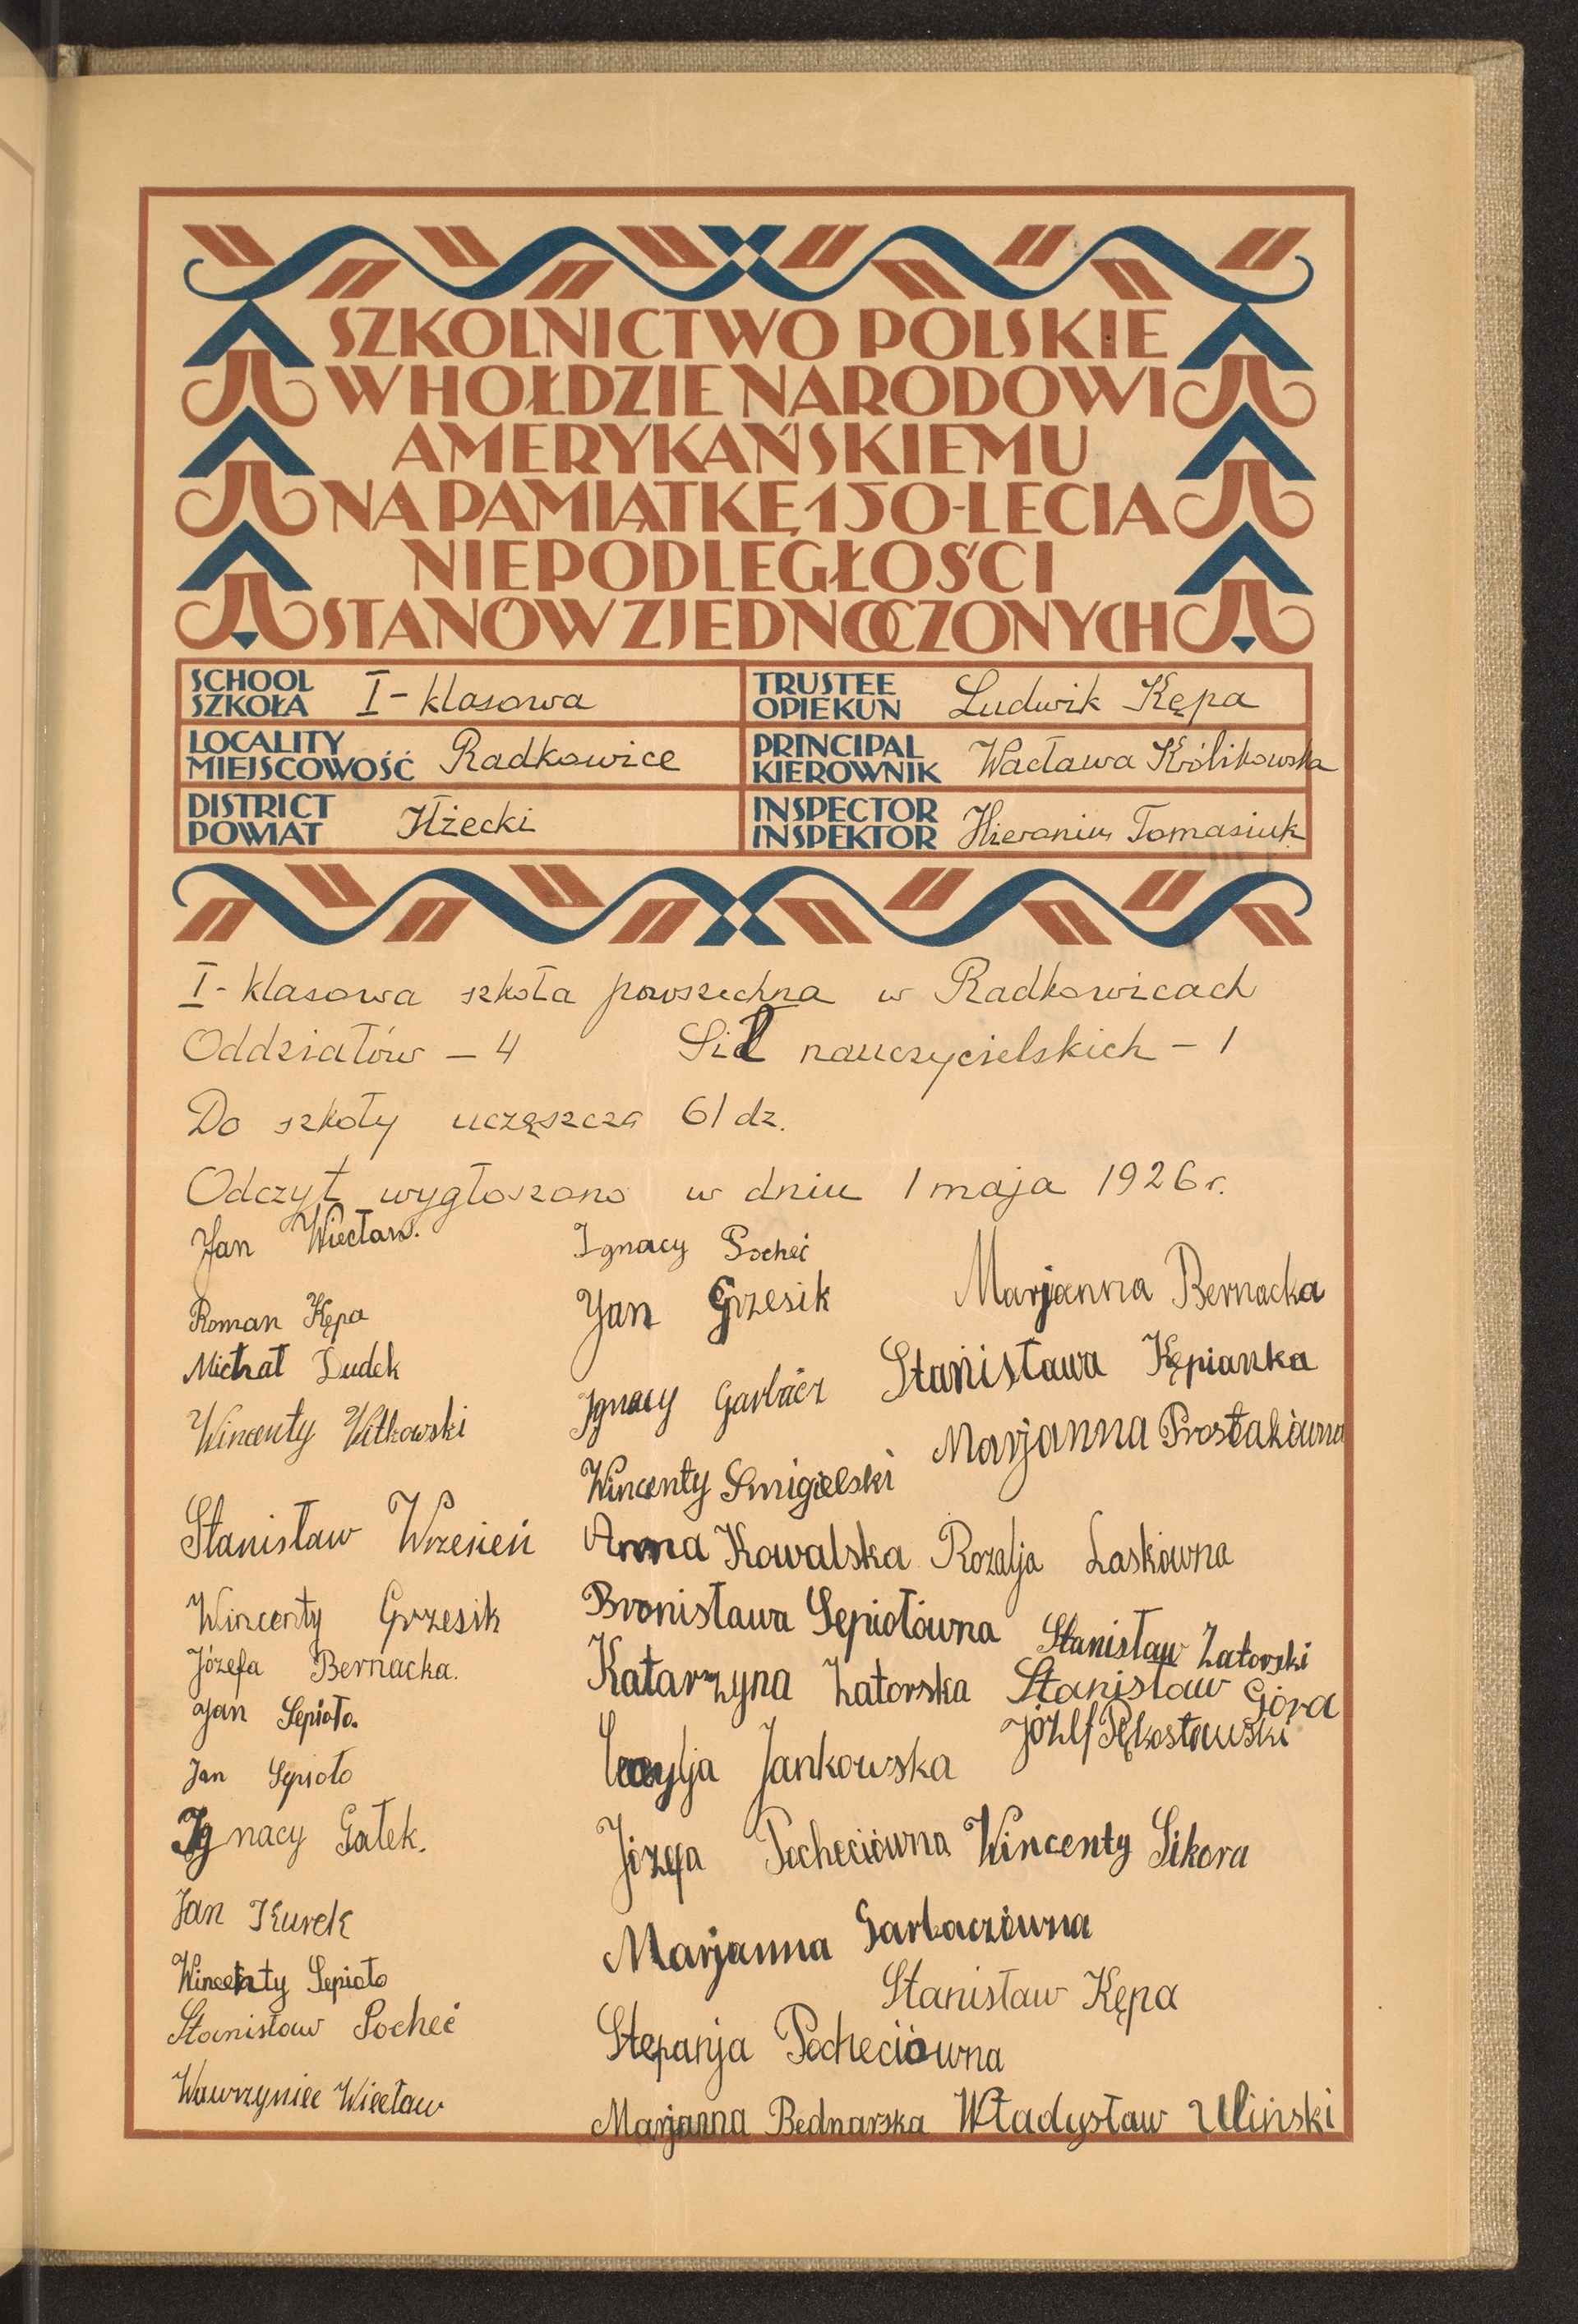 SZKOLNICTWO POLSKIE
W HOŁDZIE NARODOWI
AMERYKAŃSKIEMU
NA PAMIĄTKĘ 150-LECIA
NIEPODLEGŁOŚCI
STANÓW ZJEDNOCZONYCH
SCHOOL
SZKOŁA I - klasowa
TRUSTEE
OPIEKUN Ludwik Kępa
LOCALITY
MIEJSCOWOŚĆ Radkowice
PRINCIPAL
KIEROWNIK Wacława Królikowska
DISTRICT
POWIAT Iłżecki
INSPECTOR
INSPEKTOR Hieronim Tomasiuk
I - klasowa szkoła powszechna w Radkowicach
Oddziałów – 4 Sił nauczycielskich – 1
Do szkoły uczęszcza 61 dz.
Odczyt wygłoszono w dniu 1 maja 1926 r.
Jan Wiecław.
Roman Kępa
Michał Dudek
Wincenty Witkowski
Stanisław Wrzesień
Wincenty Grzesik
Józefa Bernacka.
Jan Sepioło.
Jan Sepioło
Ignacy Gałek.
Jan Kurek
Wincenty Sepioło
Stanisław Pocheć
Wawrzyniec Wiecław
Ignacy Pocheć
Jan Grzesik
Ignacy Garbacz
Wincenty Smigielski
Anna Kowalska
Bronisława Sepiołówna
Katarzyna Zatorska
Cecylja Jankowska
Józefa Pocheciówna
Marjanna Garbaczówna
Stefanja Pocheciówna
Marjanna Bednarska
Marjanna Bernacka
Stanisława Kępianka
Marjanna Prostakówna
Rozalja Laskówna
Stanisław Zatorski
Stanisław Góra
Józef Pękosławski
Wincenty Sikora
Stanisław Kępa
Władysław Uliński